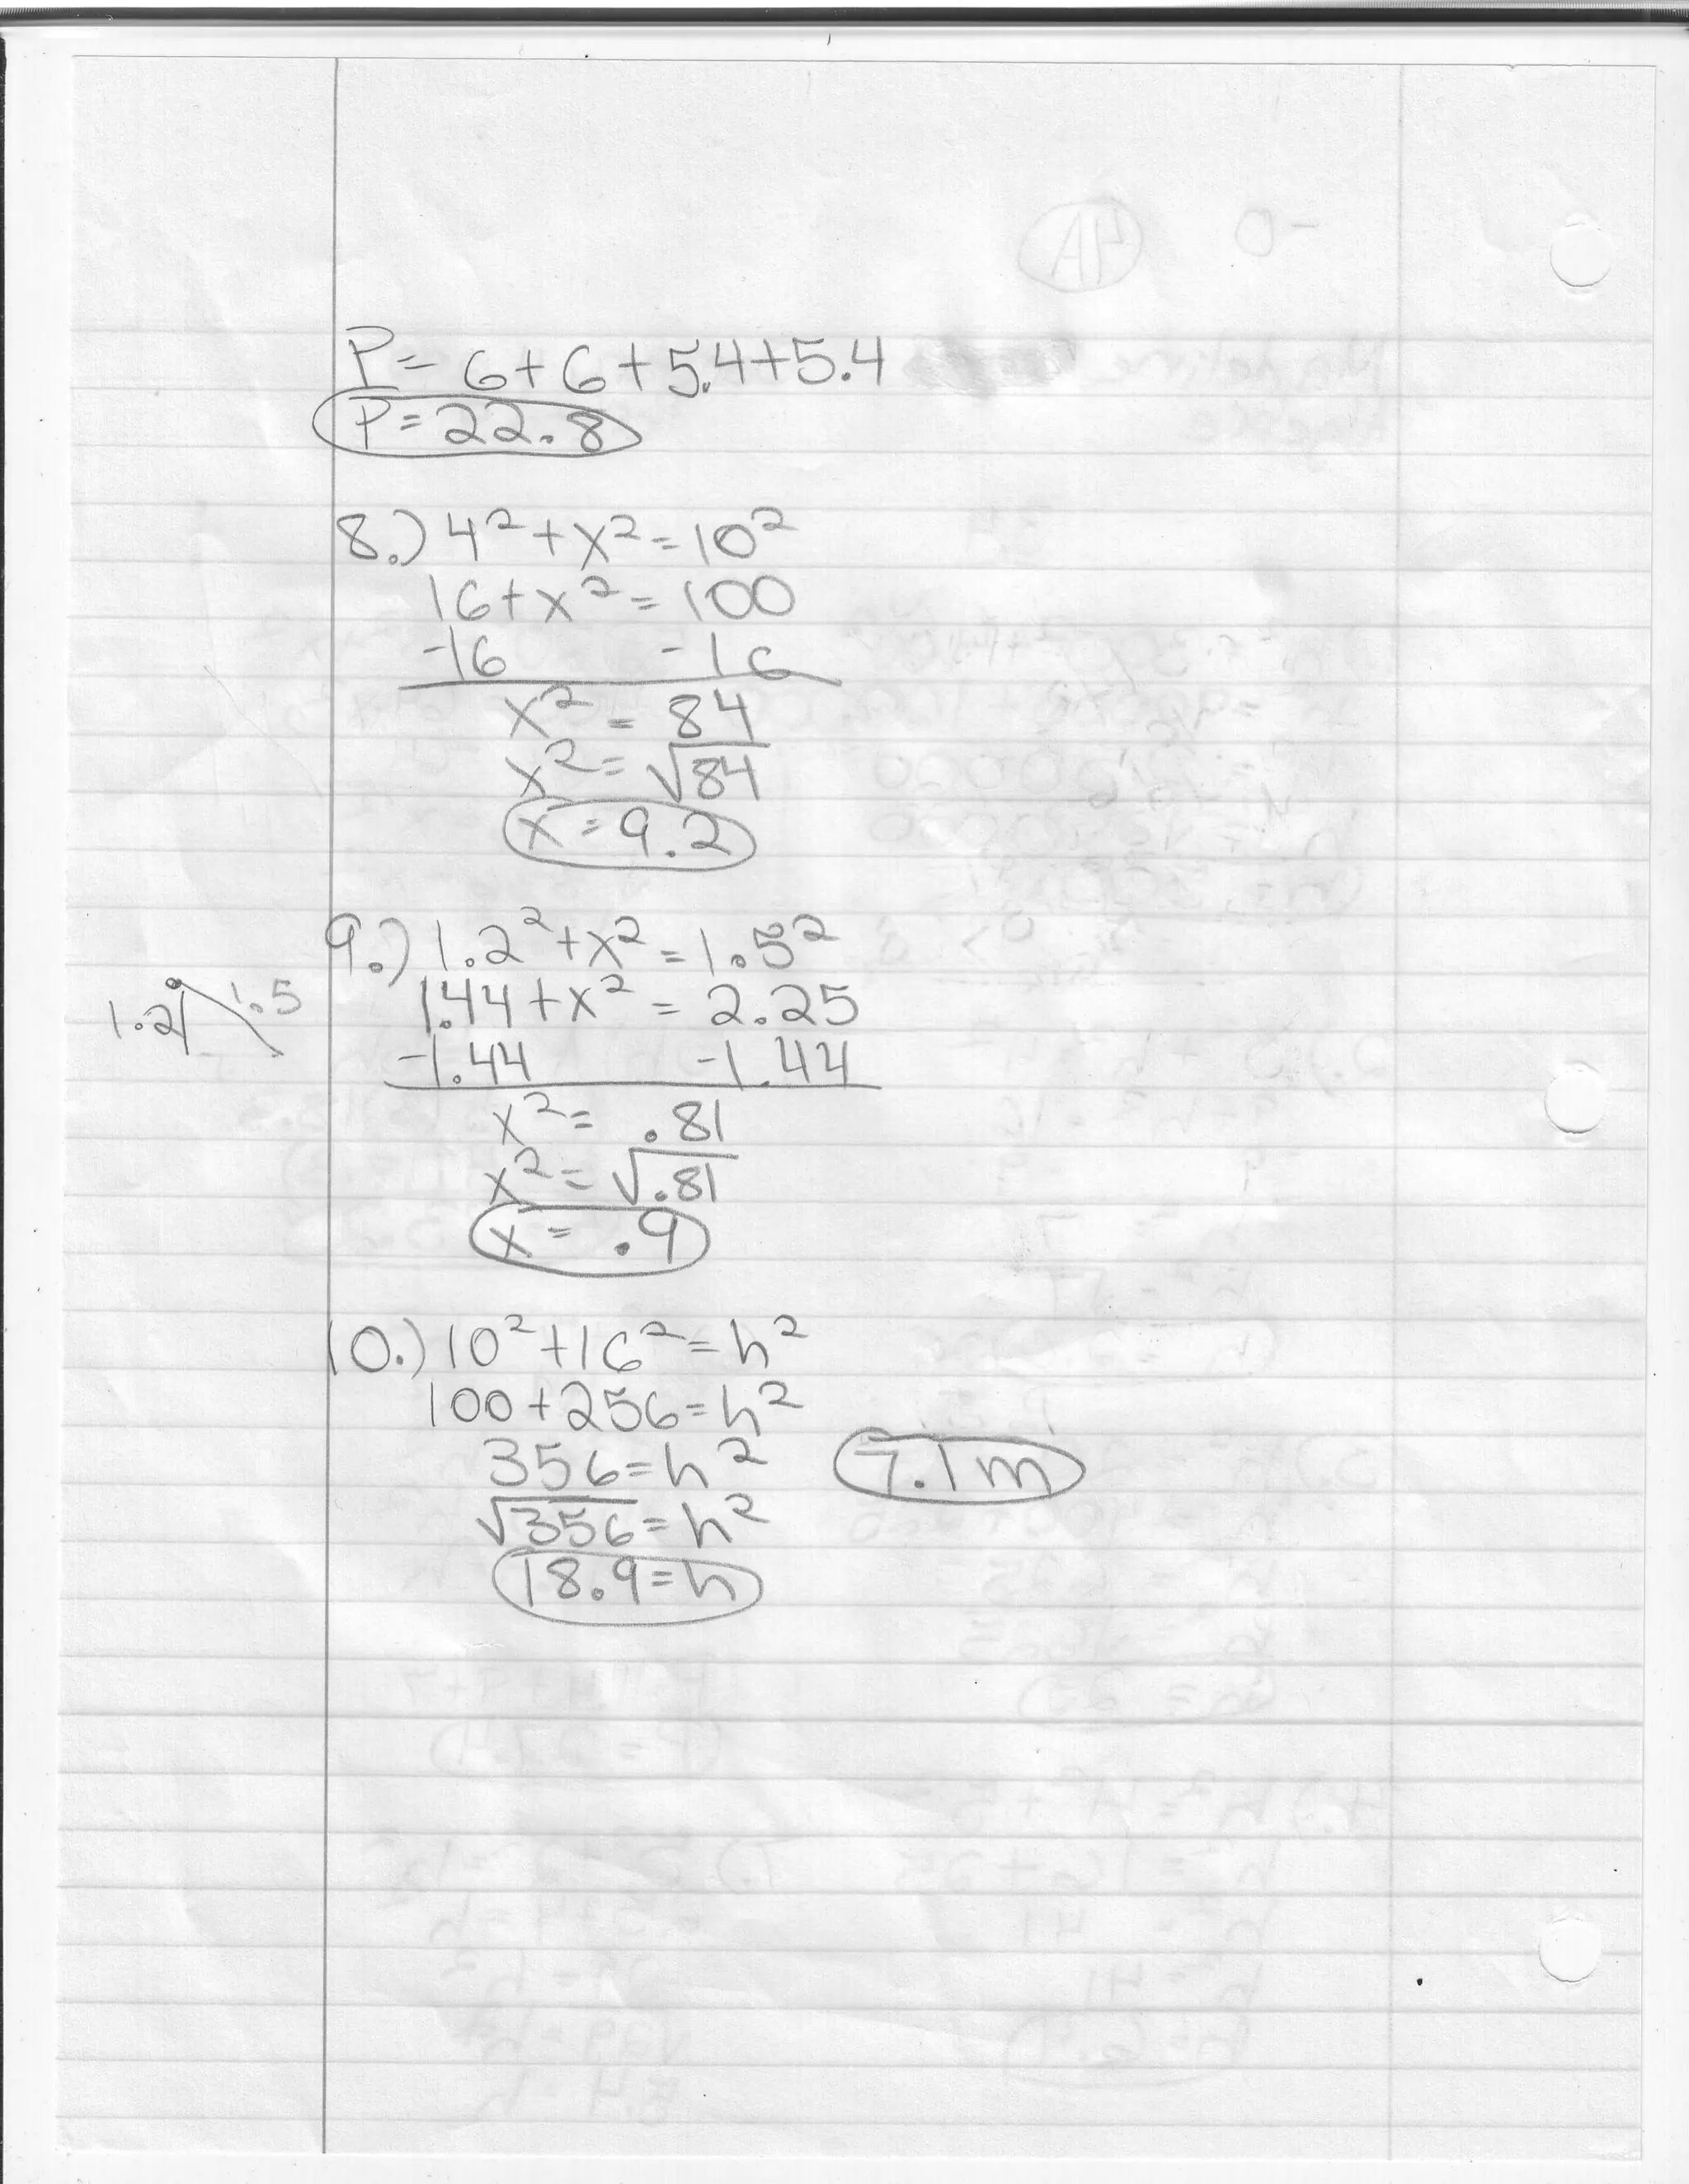 P = 6+6+5.4+5.4
P=22.8
8.) 4²+x²=10²
16+x²=100
-16 -16
x² = 84
x²=√84
x=9.2
9.) 1.2²+x²=1.5²
1.2 1.5
1.44+x²=2.25
-1.44 -1.44
x²= .81
x²=√.81
x= .9
10.) 10²+16²=h²
100+256=h²
356=h² 7.1m
√356=h²
18.9=h